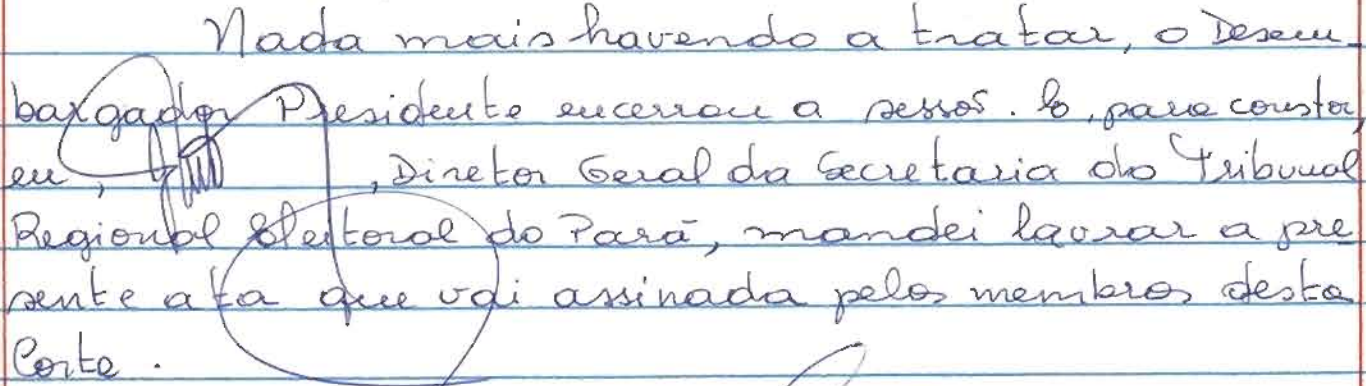 Nada mais havendo a tratar, o Desem
bargador Presidente encerrou a sessão. E, para constar,
eu, , Diretor Geral da Secretaria do Tribunal
Regional Eleitoral do Pará, mandei lavrar a pre
sente ata que vai assinada pelos membros desta
Corte.